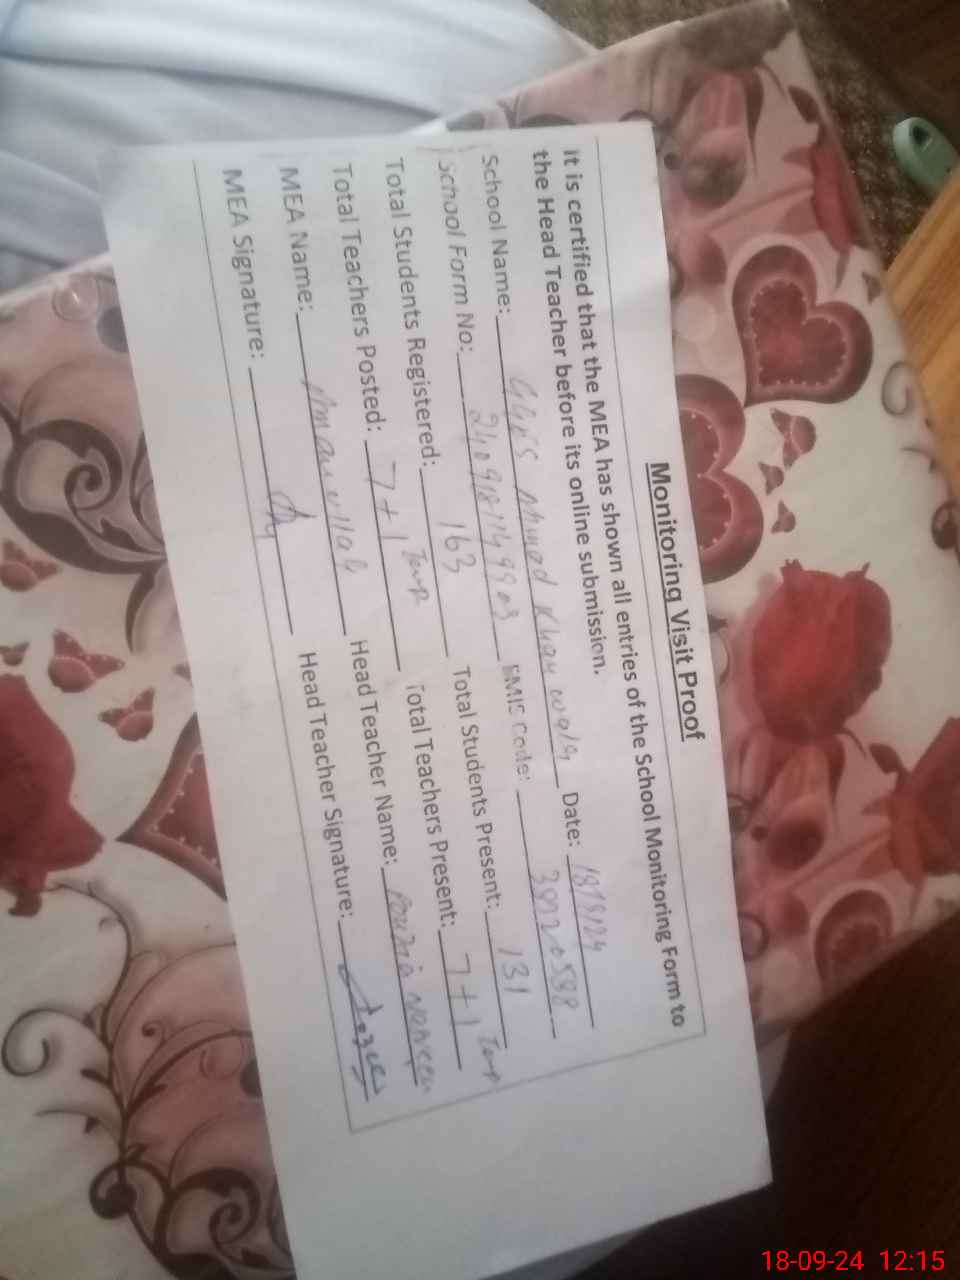 Monitoring Visit Proof
It is certified that the MEA has shown all entries of the School Monitoring Form to
the Head Teacher before its online submission.
School Name: GGPS Ahmad Khan wala Date: 18/9/24
School Form No: EMIS Code: 39320588
Total Students Registered: 163 Total Students Present: 131
Total Teachers Posted: 7+1 Temp Total Teachers Present: 7+1 Temp
MEA Name: Amanullah Head Teacher Name: Fouzia Noreen
MEA Signature: Head Teacher Signature:
18-09-24 12:15